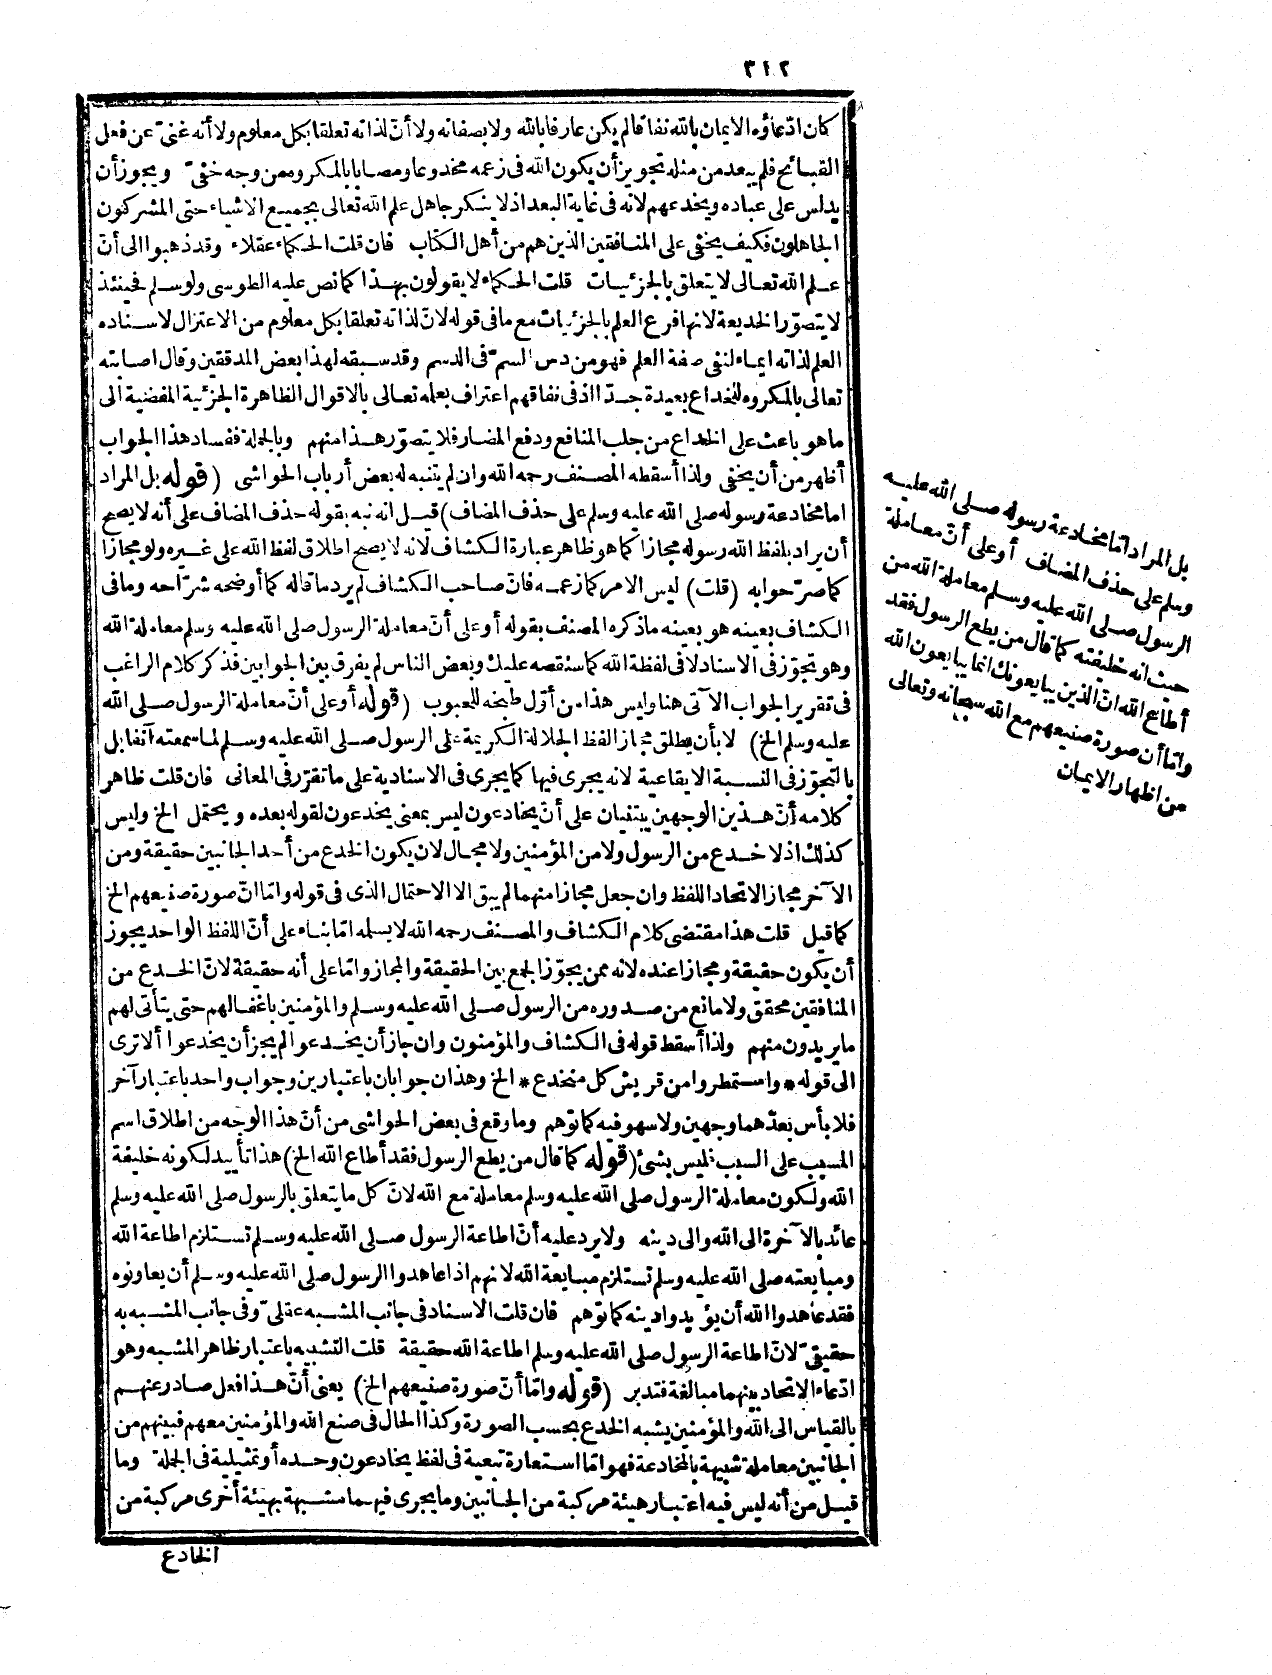 ٣١٢
كان ادّعاؤه الايمان بالله نفاقا لم يكن عارفا بالله ولا بصفاته ولا أنّ لذاته تعلقا بكل معلوم ولا أنه غنىّ عن فعل
القبائح فلم يبعد من مثله تجويز أن يكون الله فى زعمه مخدوعا ومصابا بالمكروه من وجه خفىّ ويجوز أن
يدلس على عباده ويخدعهم لانه فى غاية البعد اذ لا ينكر جاهل علم الله تعالى بجميع الاشياء حتى المشركون
الجاهلون فكيف يخفى على المنافقين الذين هم من أهل الكتاب فان قلت الحكماء عقلاء وقد ذهبوا الى أنّ
علم الله تعالى لا يتعلق بالجزئيات قلت الحكماء لا يقولون بهذا كما نص عليه الطوسى ولو سلم فحينئذ
لا يتصوّر الخديعة لانها فرع العلم بالجزئيات مع ما فى قوله لانّ لذاته تعلقا بكل معلوم من الاعتزال لاسناده
العلم لذاته ايماء لنفى صفة العلم فهو من دس السمّ فى الدسم وقد سبقه لهذا بعض المدققين وقال اصابته
تعالى بالمكروه للخداع بعيدة جدّا اذ فى نفاقهم اعتراف بعلمه تعالى بالاقوال الظاهرة الجزئية المفضية الى
ما هو باعث على الخداع من جلب المنافع ودفع المضار فلا يتصوّر هذا منهم وبالجملة ففساد هذا الجواب
أظهر من أن يخفى ولذا أسقطه المصنف رحمه الله وان لم يتنبه له بعض أرباب الحواشى (قوله بل المراد
اما مخادعة رسوله صلى الله عليه وسلم على حذف المضاف) قيل انه نبه بقوله حذف المضاف على أنه لا يصح
أن يراد بلفظ الله رسوله مجازا كما هو ظاهر عبارة الكشاف لانه لا يصح اطلاق لفظ الله على غيره ولو مجازا
كما صرّحوا به (قلت) ليس الامر كما زعمه فانّ صاحب الكشاف لم يرد ما قاله كما أوضحه شرّاحه وما فى
الكشاف بعينه هو بعينه ما ذكره المصنف بقوله أو على أنّ معاملة الرسول صلى الله عليه وسلم معاملة الله
وهو تجوّز فى الاسناد لا فى لفظة الله كما سنقصه عليك وبعض الناس لم يفرق بين الجوابين فذكر كلام الراغب
فى تقرير الجواب الآتى هنا وليس هذا من أوّل طبخه للعبوب (قوله أو على أنّ معاملة الرسول صلى الله
عليه وسلم الخ) لا بأن يطلق مجاز الفظ الجلالة الكريمة على الرسول صلى الله عليه وسلم لما سمعته آنفا بل
بالتجوّز فى النسبة الايقاعية لانه يجرى فيها كما يجرى فى الاسنادية على ما تقرّر فى المعانى فان قلت ظاهر
كلامه أنّ هذين الوجهين يبتنيان على أنّ يخادعون ليس بمعنى يخدعون لقوله بعده ويحتمل الخ وليس
كذلك اذ لا خدع من الرسول ولا من المؤمنين ولا مجال لان يكون الخدع من أحد الجانبين حقيقة ومن
الآخر مجاز الاتحاد اللفظ وان جعل مجازا منهما لم يبق الا الاحتمال الذى فى قوله وامّا انّ صورة صنيعهم الخ
كما قيل قلت هذا مقتضى كلام الكشاف والمصنف رحمه الله لا يسلمه امّا بناء على أنّ اللفظ الواحد يجوز
أن يكون حقيقة ومجازا عنده لانه ممن يجوّز الجمع بين الحقيقة والمجاز وامّا على أنه حقيقة لانّ الخدع من
المنافقين محقق ولا مانع من صدوره من الرسول صلى الله عليه وسلم والمؤمنين باغفالهم حتى يتأتى لهم
ما يريدون منهم ولذا أسقط قوله فى الكشاف والمؤمنون وان جاز أن يخدعوا لم يجز أن يخدعوا ألا ترى
الى قوله * واستمطروا من قريش كل منخدع * الخ وهذان جوابان باعتبارين وجواب واحد باعتبار آخر
فلا بأس بعدّهما وجهين ولا سهو فيه كما توّهم وما وقع فى بعض الحواشى من أنّ هذا الوجه من اطلاق اسم
المسبب على السبب فليس بشئ (قوله كما قال من يطع الرسول فقد أطاع الله الخ) هذا تأييد لكونه خليفة
الله ولكون معاملة الرسول صلى الله عليه وسلم معاملة مع الله لانّ كل ما يتعلق بالرسول صلى الله عليه وسلم
عائد بالآخرة الى الله والى دينه ولا يرد عليه أنّ اطاعة الرسول صلى الله عليه وسلم تستلزم اطاعة الله
ومبايعته صلى الله عليه وسلم تستلزم مبايعة الله لانهم اذا عاهدوا الرسول صلى الله عليه وسلم أن يعاونوه
فقد عاهدوا الله أن يؤيدوا دينه كما توّهم فان قلت الاسناد فى جانب المشبه عقلىّ وفى جانب المشبه به
حقيقىّ لانّ اطاعة الرسول صلى الله عليه وسلم اطاعة الله حقيقة قلت التشبيه باعتبار ظاهر المشبه وهو
ادّعاء الاتحاد بينهما مبالغة فتدبر (قوله وامّا أنّ صورة صنيعهم الخ) يعنى أنّ هذا فعل صادر عنهم
بالقياس الى الله والمؤمنين يشبه الخدع بحسب الصورة وكذا الحال فى صنع الله والمؤمنين معهم فبينهم من
الجانبين معاملة شبيهة بالمخادعة فهو امّا استعارة تبعية فى لفظ يخادعون وحده أو تمثيلية فى الجملة وما
قيل من أنه ليس فيه اعتبار هيئة مركبة من الجانبين وما يجرى فيهما مشبهة بهيئة أخرى مركبة من
الخادع
بل المراد امّا مخادعة رسوله صلى الله عليه
وسلم على حذف المضاف أو على أنّ معاملة
الرسول صلى الله عليه وسلم معاملة الله من
حيث انه خليفته كما قال من يطع الرسول فقد
أطاع الله انّ الذين يبايعونك انما يبايعون الله
وامّا أن صورة صنيعهم مع الله سبحانه وتعالى
من اظهار الايمان